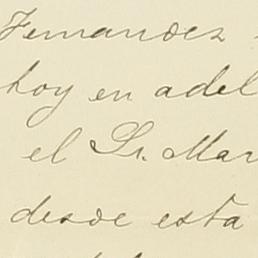 Fernandez
hoy en adel
el Sr. Mar
desde esta